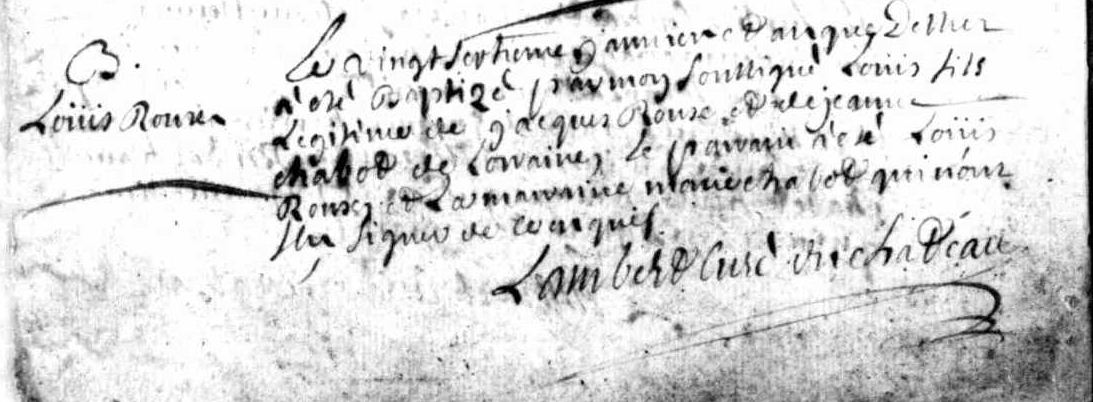 B.
Loüis Roux
Le vingt septieme janvier
a eté Baptizé par moy soussigné Loüis fils
Legitime de jacques Roux et de jeanne
chabot de Lorraine, Le parain a eté Loüis
Roux, et La maraine marie chabot qui n'ont
sçu signer de ce enquis.
Lambert Curé du chateau